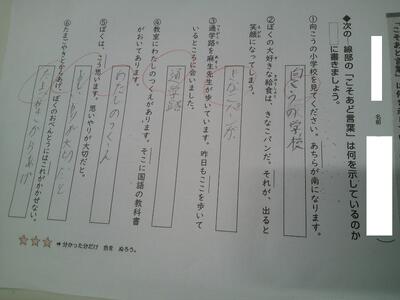 「こそあど言葉」
名前
◆次の―線部の「こそあど言葉」は何を示しているのか
□に書きましょう。
①向こうの小学校を見てください。あちらが南になります。
向こうの小学校
②ぼくの大好きな給食は、きなこパンだ。それが、出ると
笑顔になってしまう。
きなこパン
③通学路を麻生先生が歩いています。昨日もここを歩いて
いるところに会いました。
通学路
④教室にわたしのつくえがあります。そこに国語の教科書
がおいてあります。
わたしのつくえ
⑤ぼくは、こう思います。思いやりが大切だと。
思いやりが大切だと
⑥たまごやきとからあげ、ぼくのおべんとうにはこれがかかせない。
☆☆☆ ➡ 分かった分だけ 色を ぬろう。